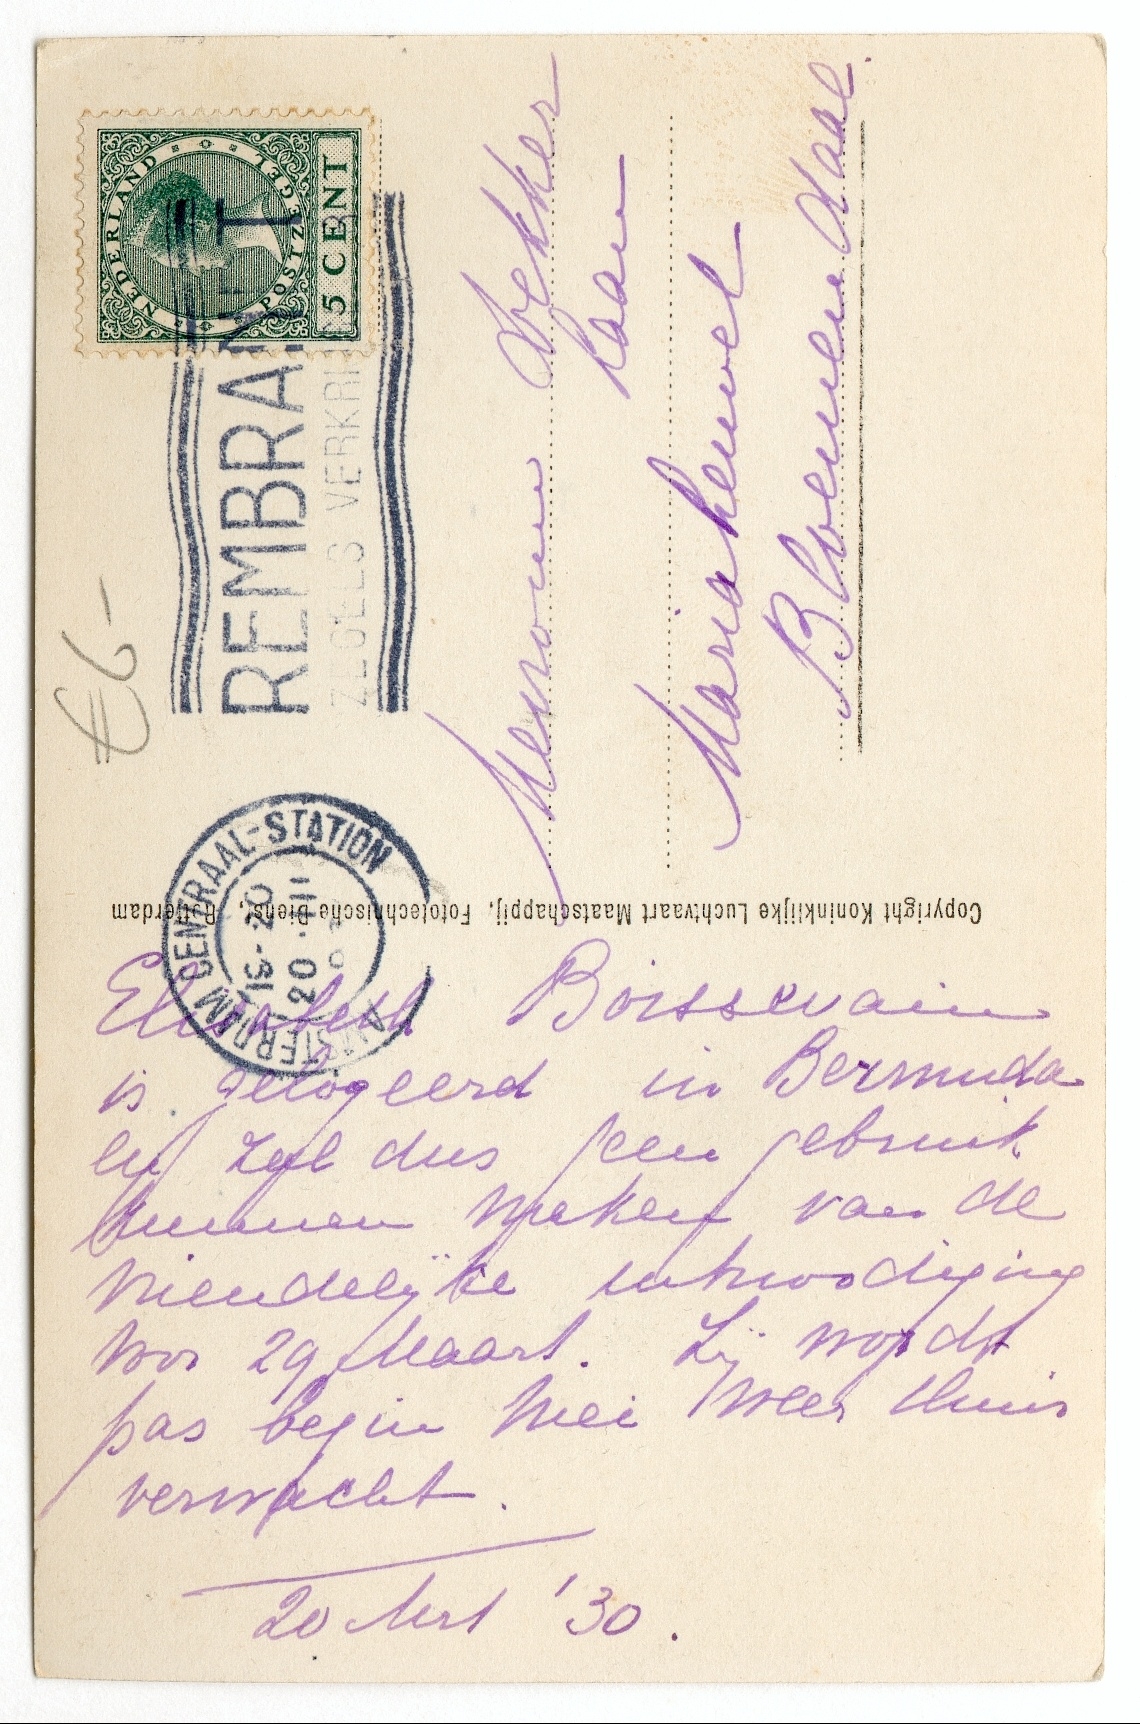 NEDERLAND
POSTZEGEL
5 CENT
REMBRANDT
ZEGELS VERKRI
AMSTERDAM CENTRAAL-STATION
20·III
€6-
Mevrouw Dekker
Laan
Mariaheuvel
Bloemendaal
Copyright Koninklijke Luchtvaart Maatschappij, Fototechnische Dienst, Rotterdam
Elisabeth Boissevain
is gelogeerd in Bermuda
en zal dus geen gebruik
kunnen maken van de
vriendelijke uitnoodiging
voor 29 Maart. Zij wordt
pas begin Mei weer thuis
verwacht.
20 Mrt '30.